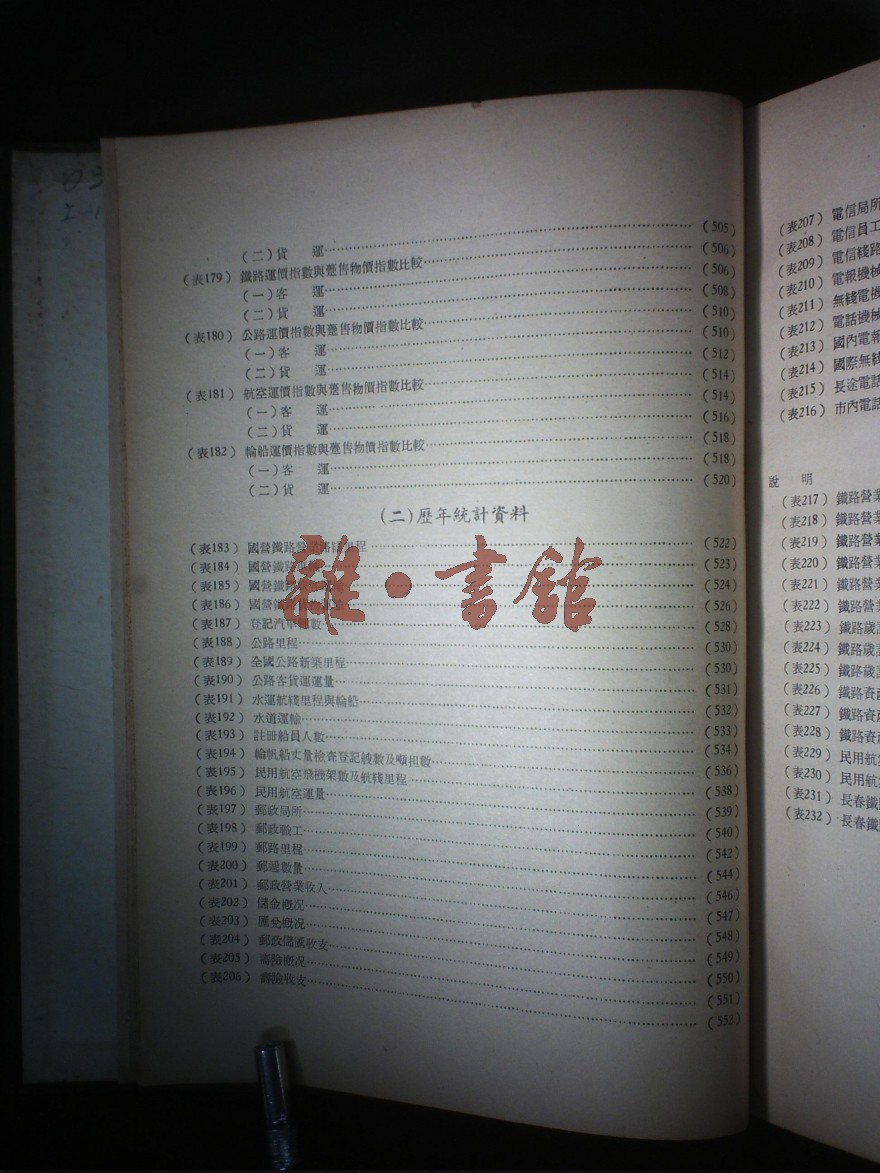 (二)貨 運……(505)
(表179)鐵路運價指數與躉售物價指數比較……(506)
(一)客 運……(506)
(二)貨 運……(508)
(表180)公路運價指數與躉售物價指數比較……(510)
(一)客 運……(510)
(二)貨 運……(512)
(表181)航空運價指數與躉售物價指數比較……(514)
(一)客 運……(514)
(二)貨 運……(516)
(表182)輪船運價指數與躉售物價指數比較……(518)
(一)客 運……(518)
(二)貨 運……(520)
(二)歷年統計資料
(表183)國營鐵路營業路綫里程……(522)
(表184)國營鐵路……(523)
(表185)國營鐵路……(524)
(表186)國營鐵路……(526)
(表187)登記汽車輛數……(528)
(表188)公路里程……(530)
(表189)全國公路新築里程……(530)
(表190)公路客貨運運量……(531)
(表191)水運航綫里程與輪船……(532)
(表192)水道運輸……(533)
(表193)註冊船員人數……(534)
(表194)輪帆船丈量檢查登記艘數及噸担數……(536)
(表195)民用航空飛機架數及航綫里程……(538)
(表196)民用航空運量……(539)
(表197)郵政局所……(540)
(表198)郵政職工……(542)
(表199)郵路里程……(544)
(表200)郵遞數量……(546)
(表201)郵政營業收入……(547)
(表202)儲金概況……(548)
(表203)匯兌概況……(549)
(表204)郵政儲匯收支……(550)
(表205)壽險概況……(551)
(表206)壽險收支……(552)
雜·書館
(表207)電信局所
(表208)電信員工
(表209)電信綫路
(表210)電報機械
(表211)無綫電機
(表212)電話機械
(表213)國內電報
(表214)國際無綫
(表215)長途電話
(表216)市內電話
說 明
(表217)鐵路營業
(表218)鐵路營業
(表219)鐵路營業
(表220)鐵路營業
(表221)鐵路營業
(表222)鐵路營業
(表223)鐵路歲計
(表224)鐵路歲計
(表225)鐵路歲計
(表226)鐵路資產
(表227)鐵路資產
(表228)鐵路資產
(表229)民用航空
(表230)民用航空
(表231)長春鐵路
(表232)長春鐵